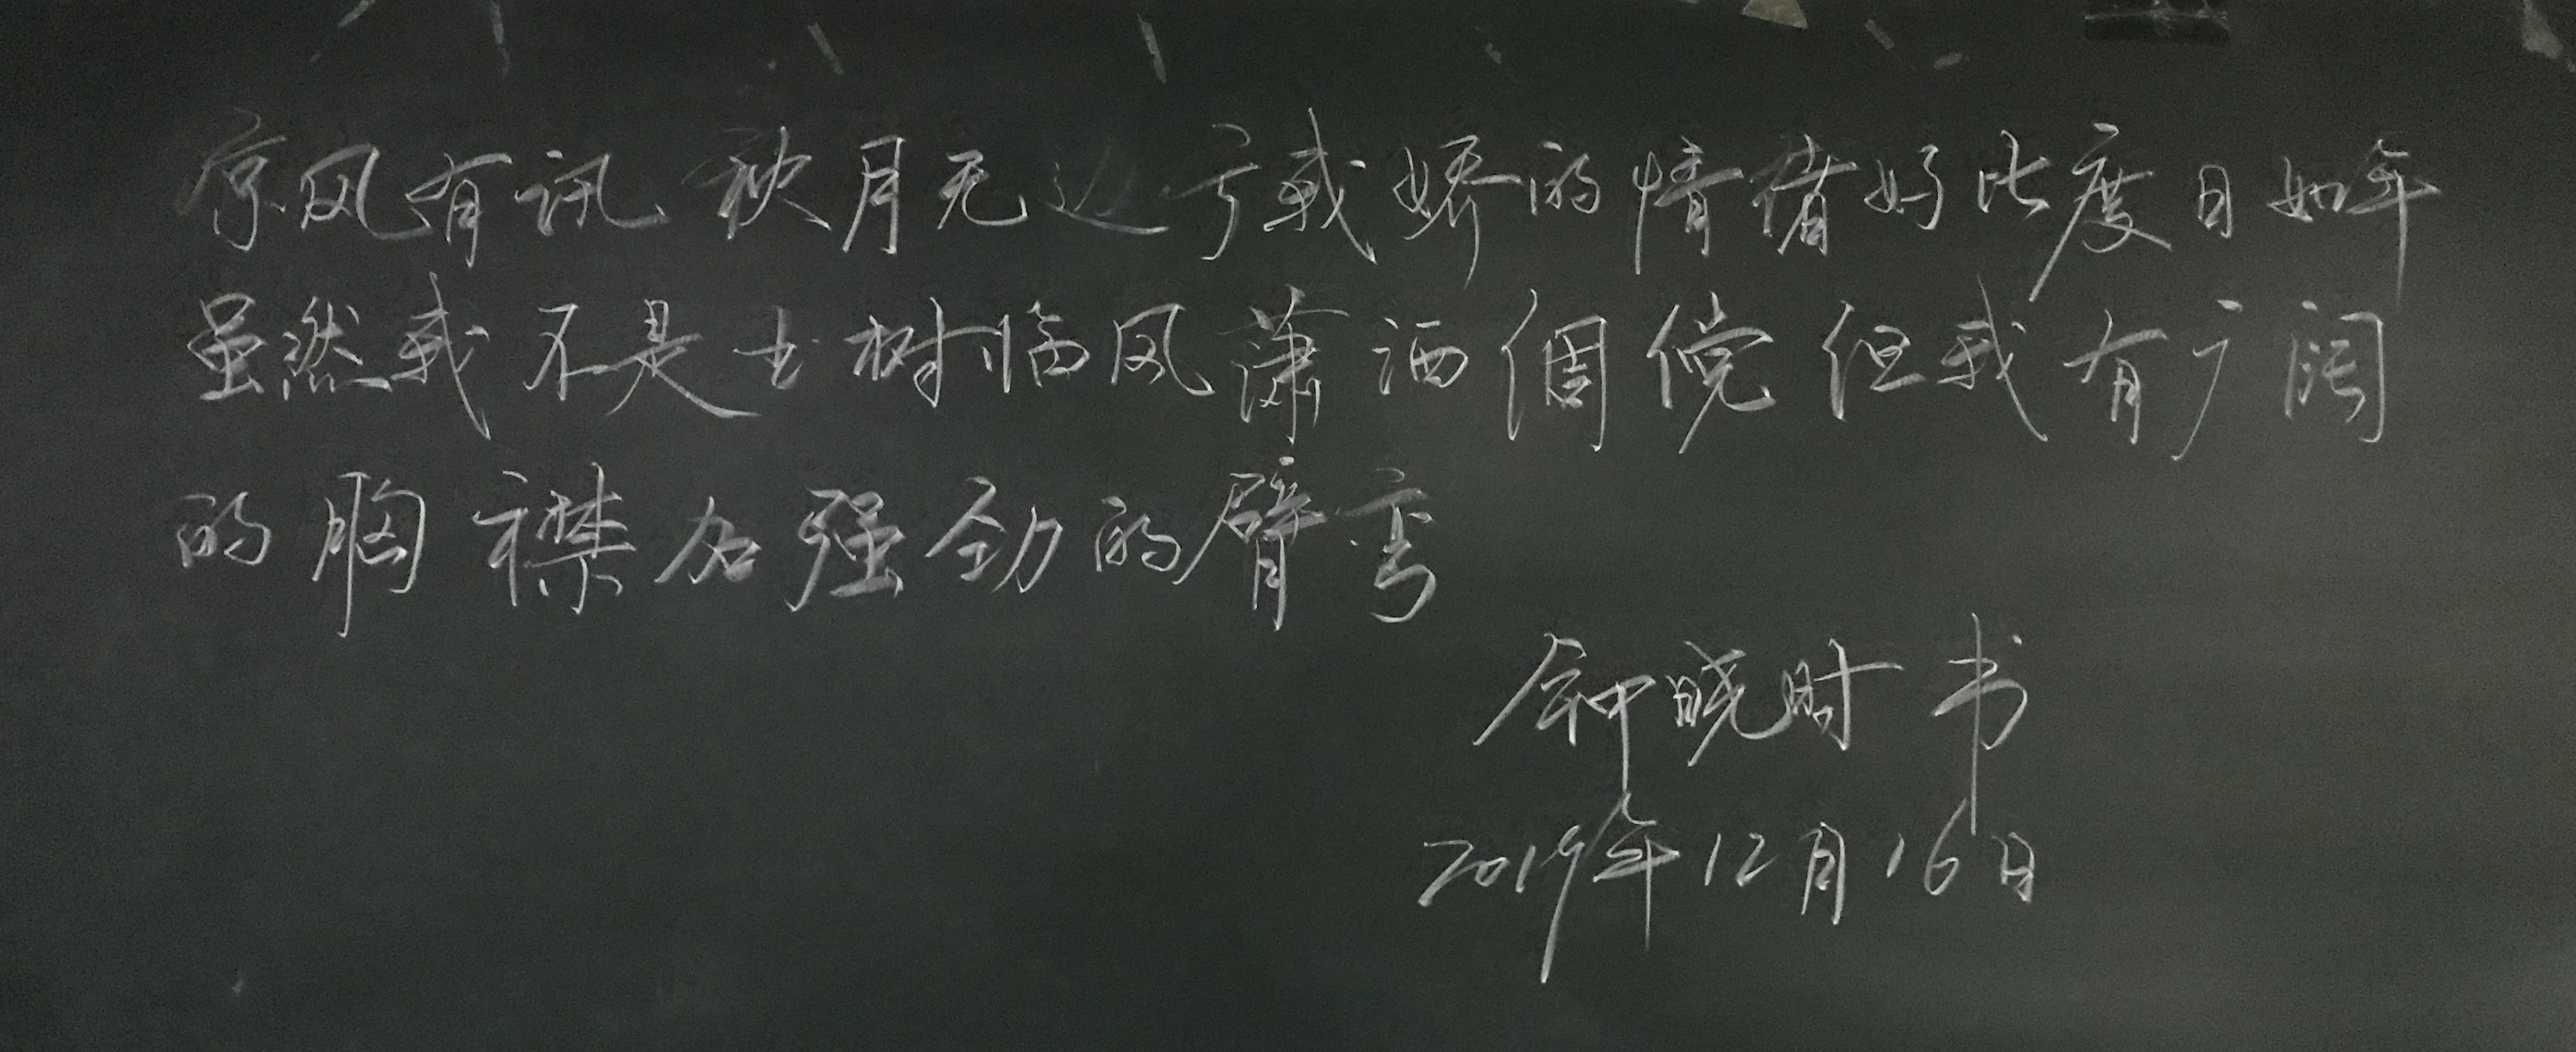 凉风有讯 秋月无边 亏我娇的情绪好比度日如年
虽然我不是玉树临风潇洒倜傥但我有广阔
的胸襟加强劲的臂弯
钟晓时 书
2019年12月16日